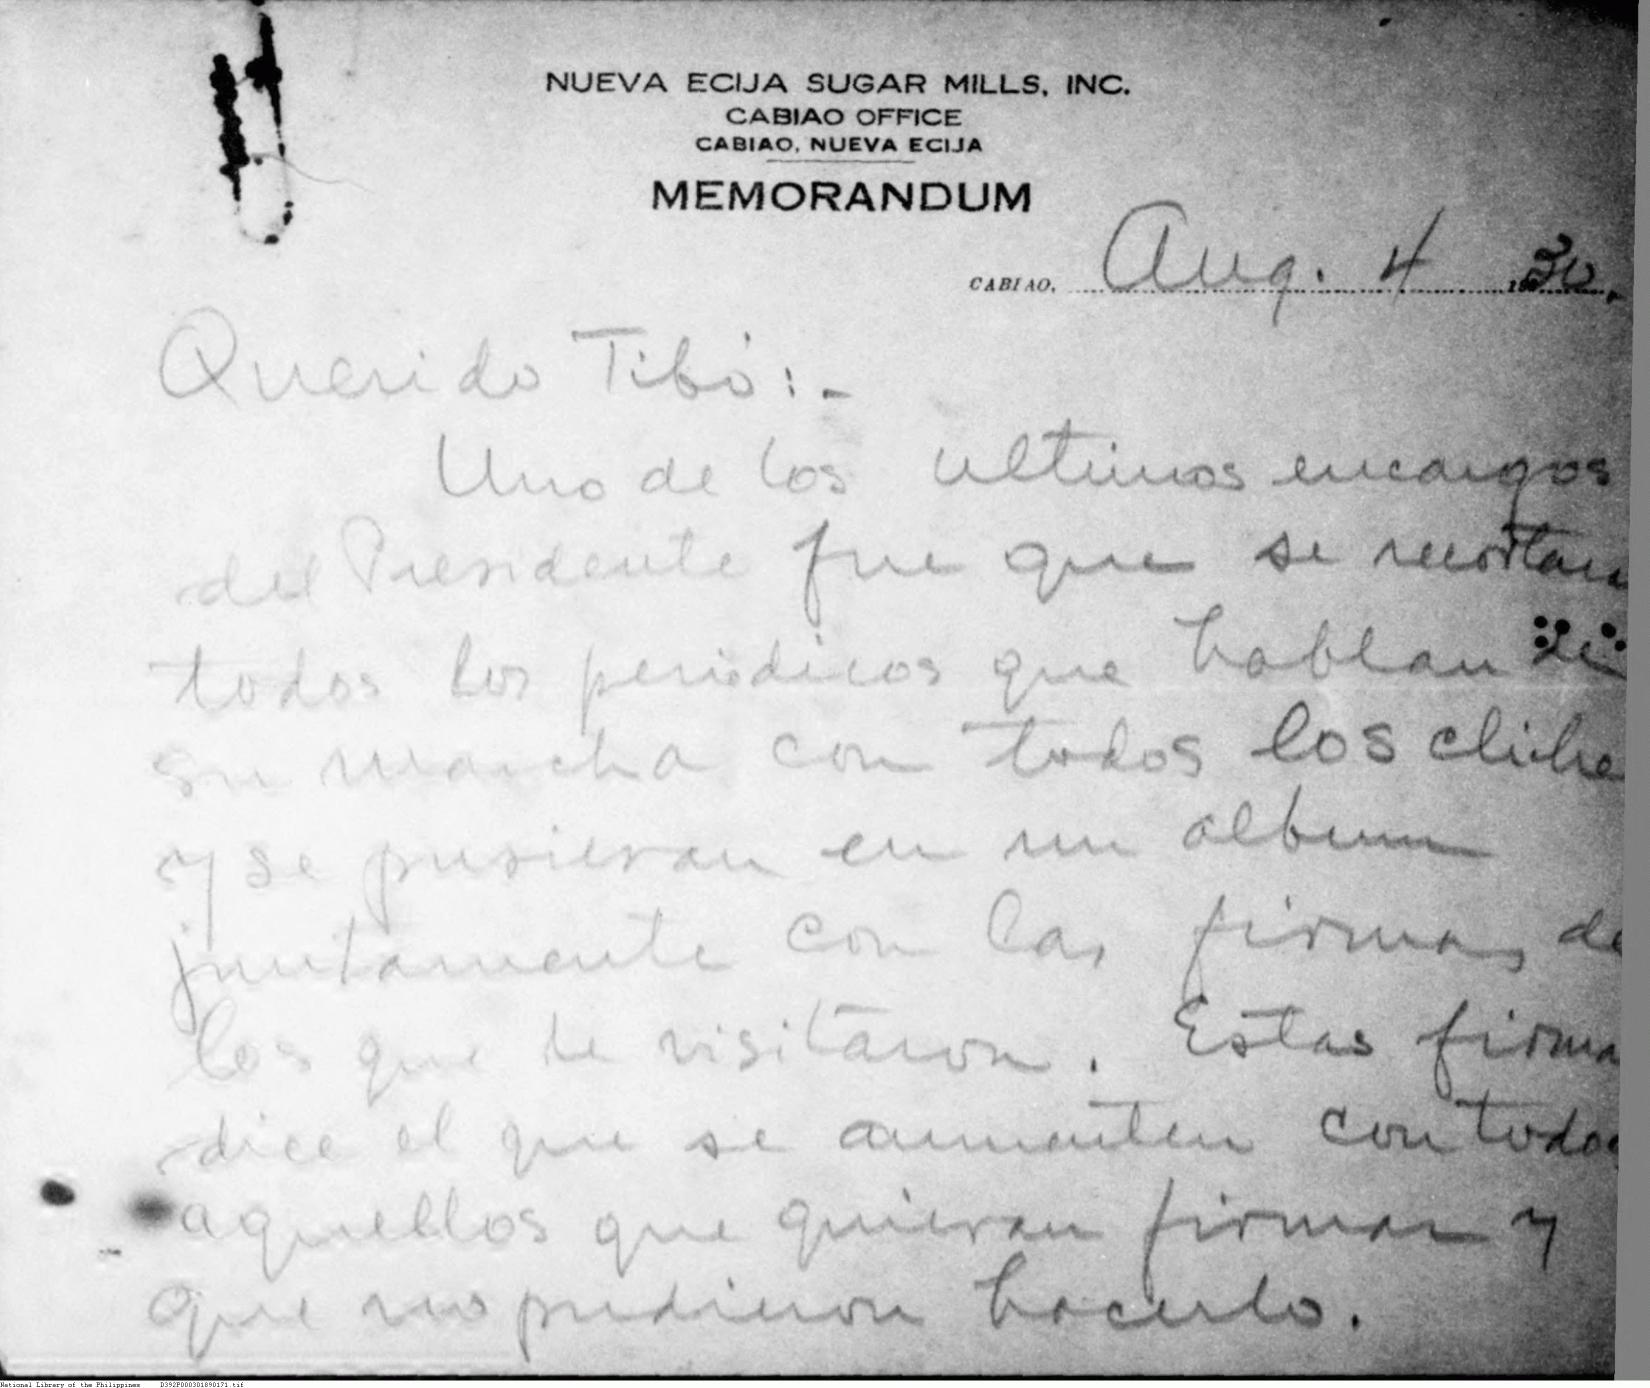 NUEVA ECIJA SUGAR MILLS, INC.
CABIAO OFFICE
CABIAO, NUEVA ECIJA
MEMORANDUM
CABIAO, Aug. 4 1930.
Querido Tibó:-
Uno de los ultimos encargos
del Presidente fue que se recortaran
todos los periodicos que hablan de
su marcha con todos los cliche
y se pusieran en un album
juntamente con las firmas de
los que le visitaron. Estas firma
dice el que se aumenten con todos
aquellos que quieran firmar y
que no pudieron hacerlo.
National Library of the Philippines D392P000301890171.tif